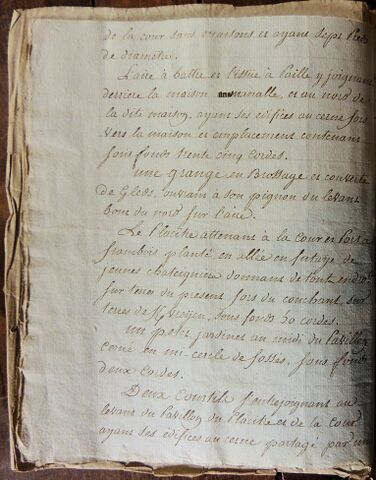 de la cour sans maisons et ayant sept pieds
de diametre.
L'aire à battre et l'issue à paille y joignant
derriere la maison manalle, et au nord de
la dite maison, ayant ses édifices au cerne fors
vers la maison et emplacement contenant
sous fonds trente cinq cordes.
une grange en Brossage et couverte
de Gleds, ouvrant à son pignon du levant
bout du nord sur l'aire.
Le Placitre attenant à la cour et
planté, en allée en futaye de
jeunes chateigniers donnant de tout
sur terres du present fors du couchant, sur
terres de sous fonds 50 cordes.
un petit jardinet au midi du Pavillon
cerné en mi-cercle de fossés, sous fonds
deux cordes.
Deux Courtils s'entrejoignant au
levant du Pavillon du Placitre et de la cour
ayant ses édifices au cerne partagé par